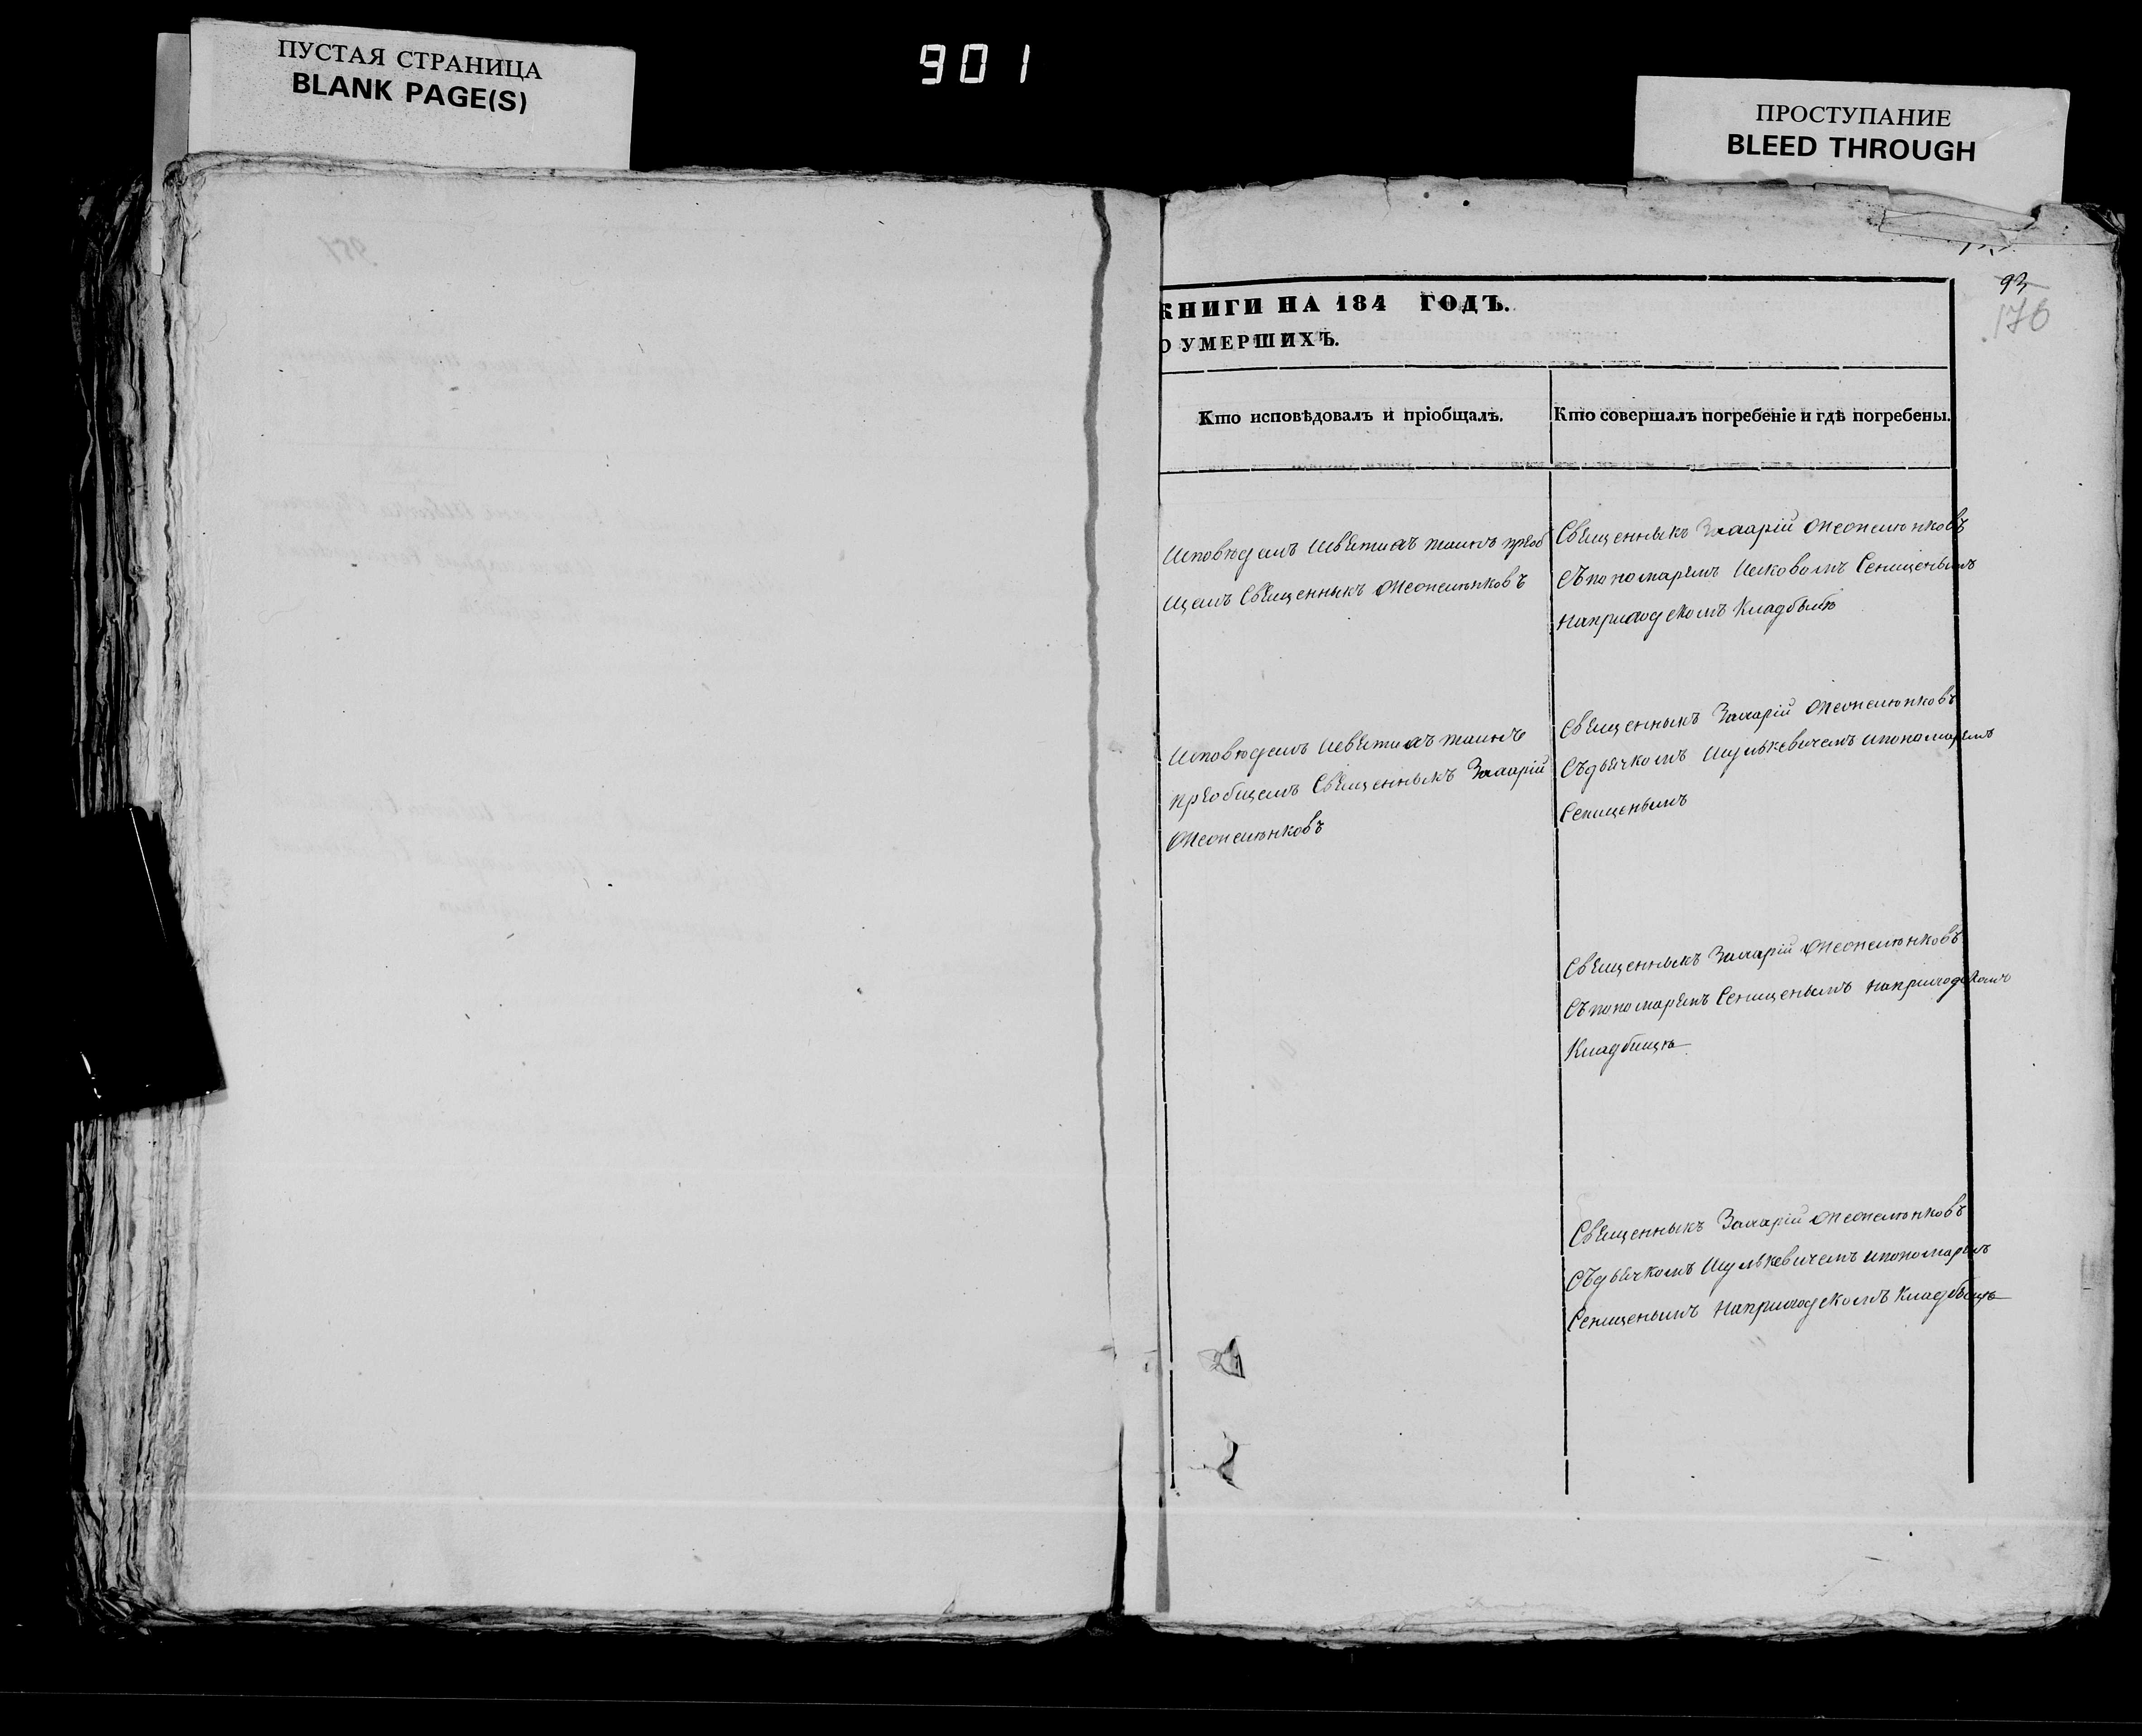 ПУСТАЯ СТРАНИЦА
BLANK PAGE(S)
901
ПРОСТУПАНИЕ
BLEED THROUGH
93
176
КНИГИ НА 184 ГОДЪ.
О УМЕРШИХЪ.
Кто исповѣдовалъ и пріобщалъ.
Кто совершалъ погребеніе и гдѣ погребены.
Исповѣдалъ Исвятихъ таинъ пріоб
щалъ Священныкъ
Священныкъ Захарій
Съпономаремъ Сенищенымъ
наприходскомъ Кладбыщѣ
Исповѣдалъ Исвятихъ таинъ
пріобщалъ Священныкъ Захарій
Священныкъ Захарій
Съдьячкомъ Шулькевичемъ ипономаремъ
Сенищенымъ
Священныкъ Захарій
Съпономаремъ Сенищенымъ наприходскомъ
Кладбищѣ
Священныкъ Захарій
Съдьячкомъ Шулькевичемъ ипономаремъ
Сенищенымъ наприходскомъ Кладбыщѣ